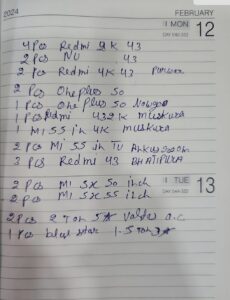 2024
FEBRUARY
MON 12
4 Pcs Redmi 4K 43
2 Pcs NU 43
2 Pcs Redmi 4K 43
2 Pcs Oneplus 50
1 Pcs One Plus 50
1 Pcs Redmi 43 2K Muskura
1 Mi 55 in 4K Muskura
2 Pcs Mi 55 in TV
3 Pcs Redmi 43 BHATIPURA
TUE 13
2 Pcs Mi 5X 50 inch
2 Pcs Mi 5X 55 inch
2 Pcs 2 Ton 5* Voltas a.c.
1 Pcs blue star 1.5 Ton 3*